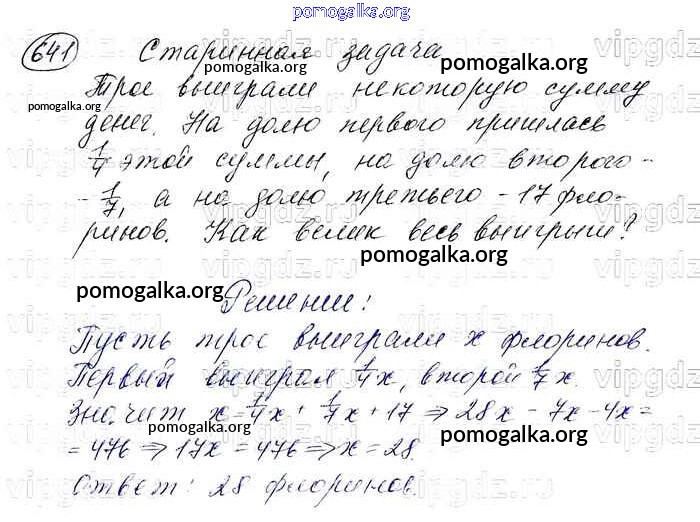 pomogalka.org
641 Старинная задача
pomogalka.org
Трое выиграли некоторую сумму
pomogalka.org
денег. На долю первого пришлась
1/4 этой суммы, на долю второго -
- 1/7, а на долю третьего - 17 фло-
pomogalka.org
ринов. Как велик весь выигрыш?
pomogalka.org
pomogalka.org
Решение:
Пусть трое выиграли x флоринов.
Первый выиграл 1/4x, второй 1/7x.
pomogalka.org
Значит x = 1/4x + 1/7x + 17 ⇒ 28x - 7x - 4x =
pomogalka.org
pomogalka.org
= 476 ⇒ 17x = 476 ⇒ x = 28.
Ответ: 28 флоринов.
vipgdz